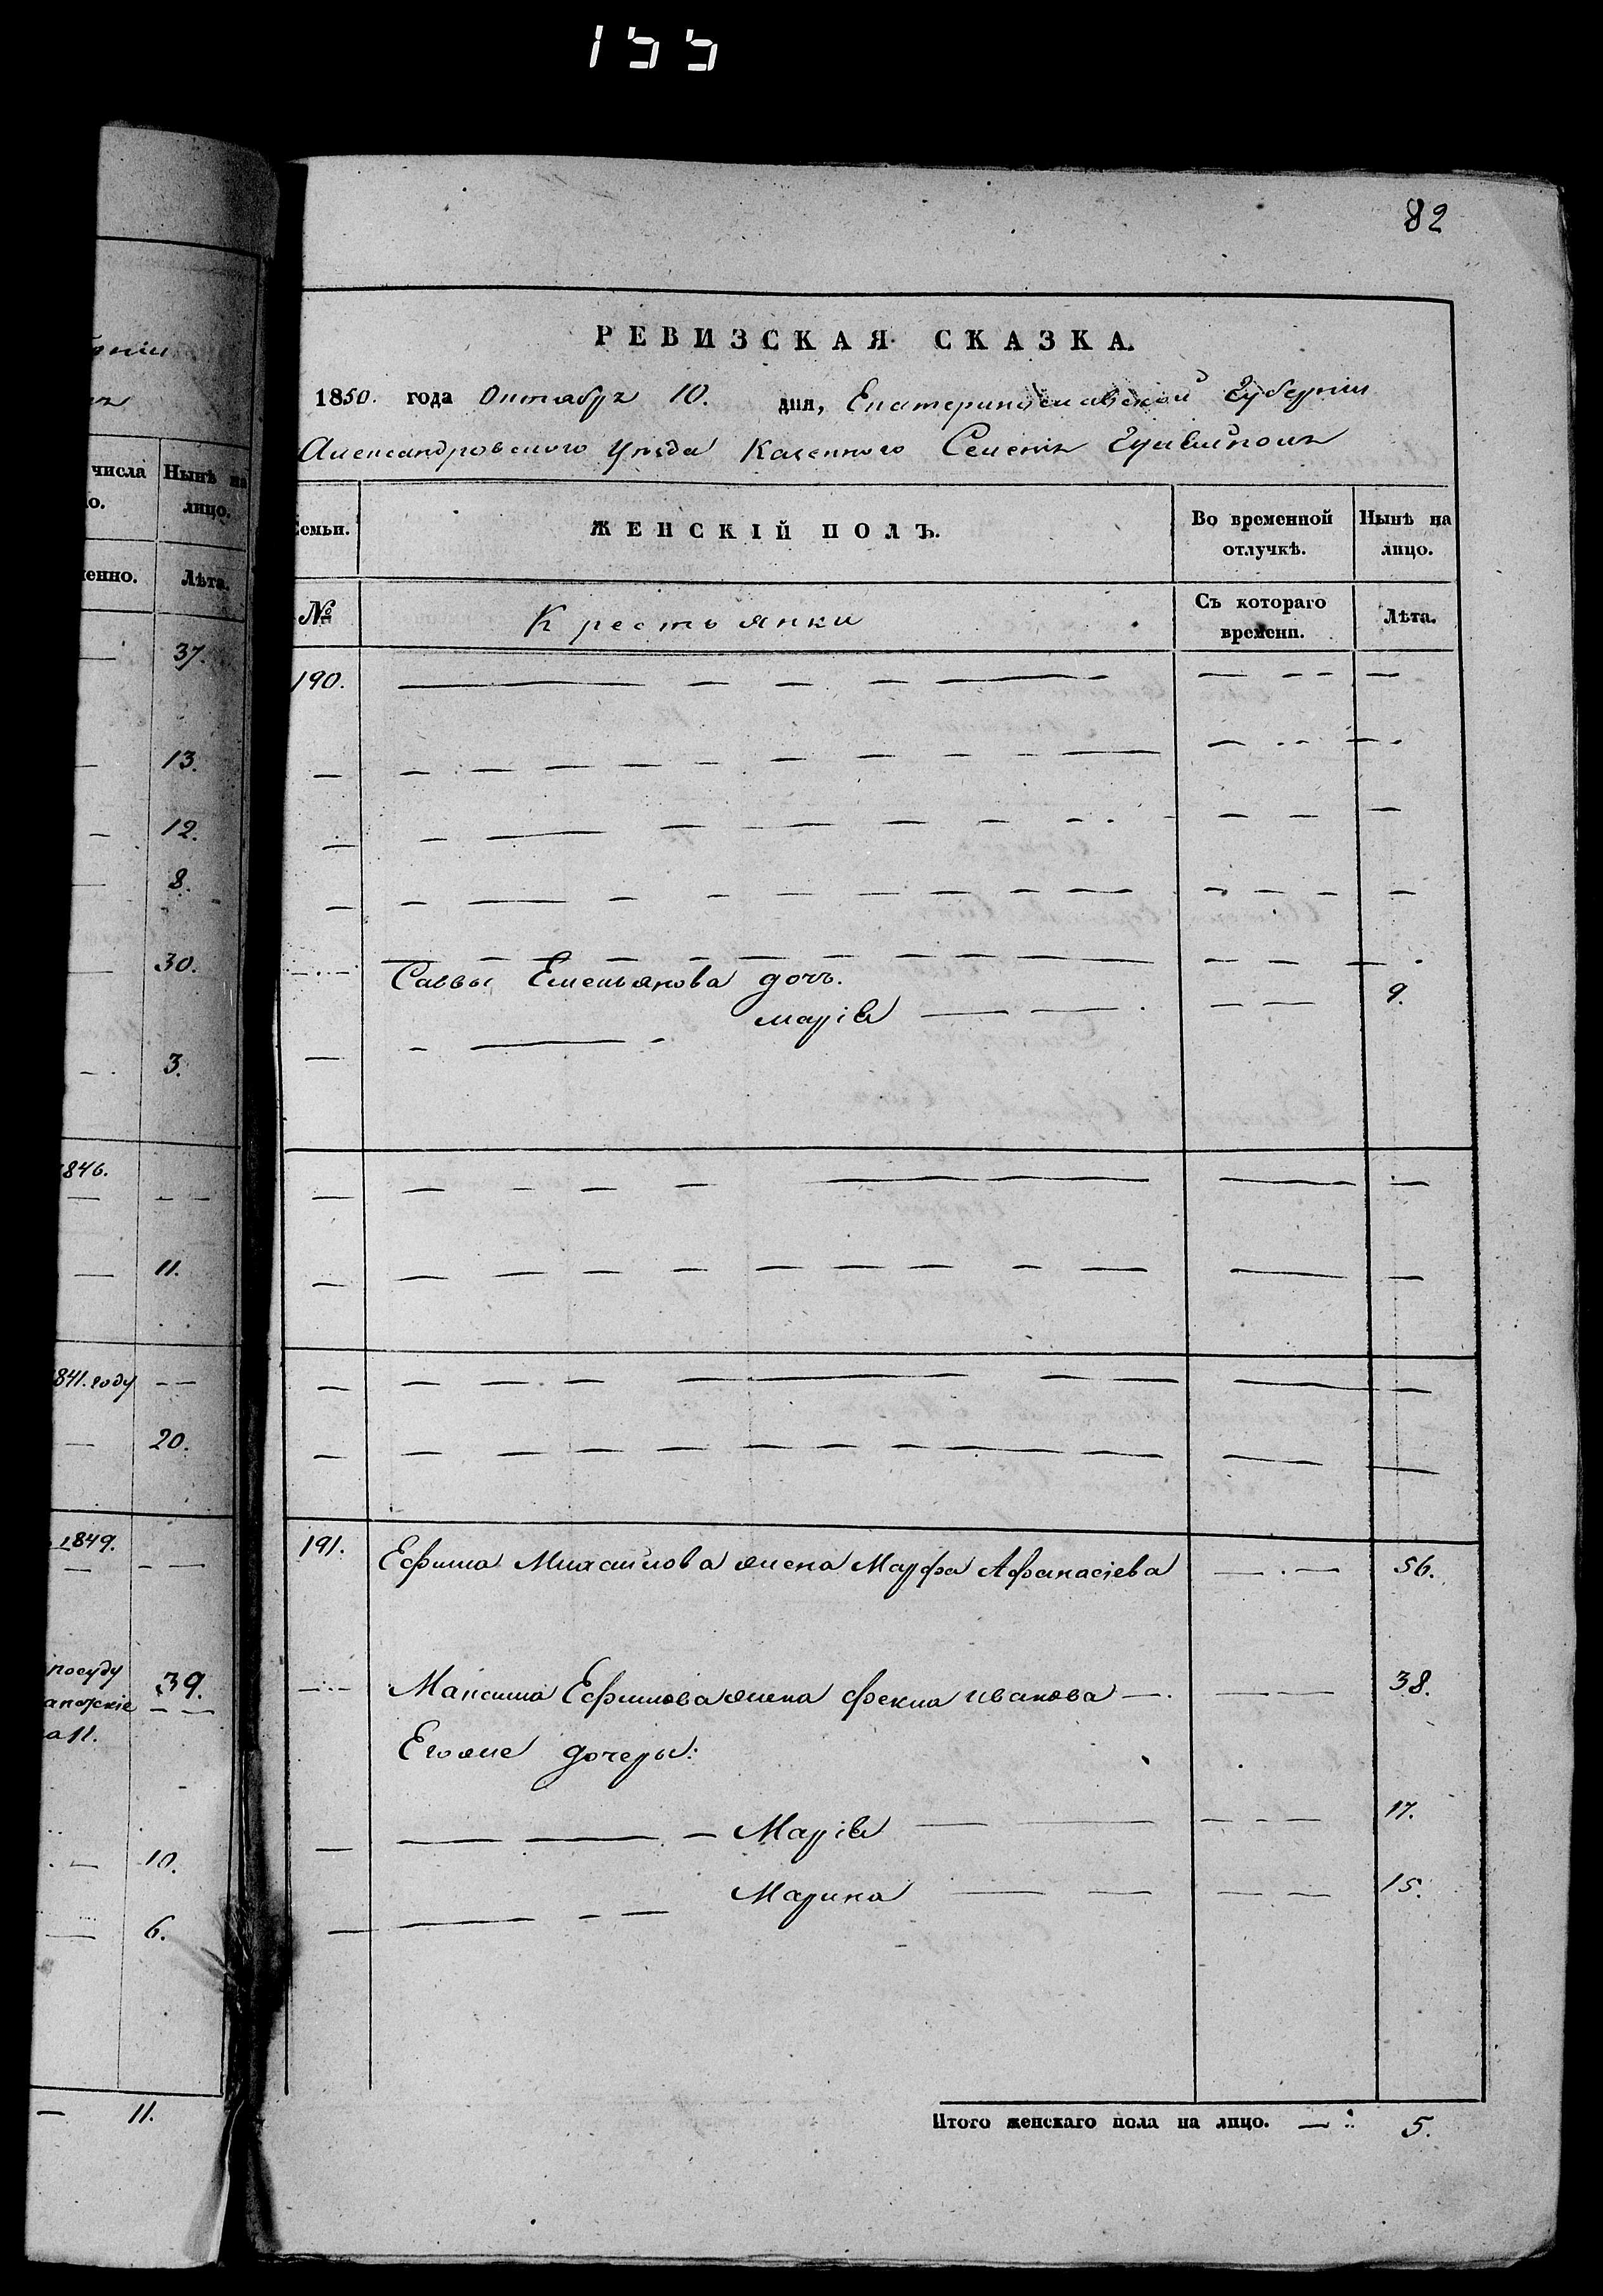 155
82
РЕВИЗСКАЯ СКАЗКА.
1850. года Октябр 10. дня, Екатеринославской Губернии
Александровского Уезда Казенного Селения
Семьи. ЖЕНСКІЙ ПОЛЪ. Во временной отлучкѣ. Нынѣ на лицо.
№ Крестьянки Съ котораго времени. Лѣта.
190.
Саввы Емельянова дочь.
Марія 9.
191. Ефима Михайлова жена Марфа Афанасіева 56.
Максима Ефимова жена Фекла Иванова 38.
Его же дочеры:
Марія 17.
Марина 15.
Итого женскаго пола на лицо. 5.
числа Нынѣ на
лицо.
Лѣта.
37.
13.
12.
8.
30.
3.
1846.
11.
1841. году
20.
1849.
посуду 39.
10.
6.
11.